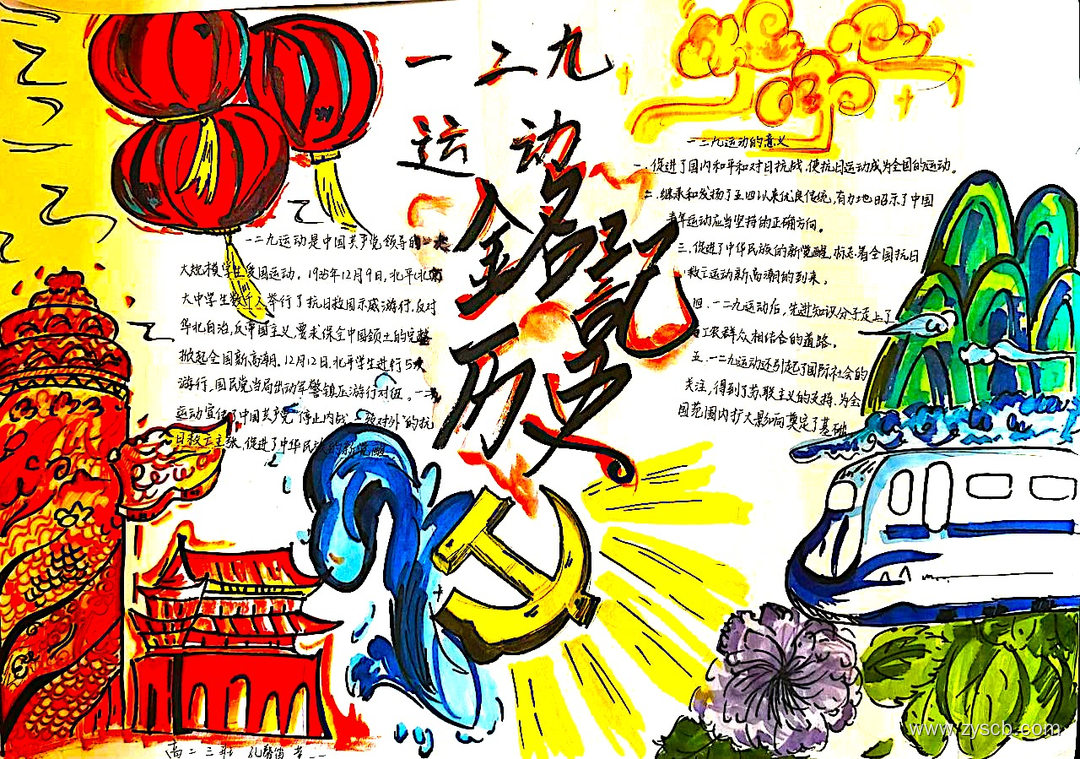 一二九
运动
銘記
历史
一二九运动是中国共产党领导的一次
大规模学生爱国运动，1935年12月9日，北平
大中学生数千人举行了抗日救国示威游行，反对
华北自治，反帝国主义，要求保全中国领土的完整
掀起全国新高潮，12月12日，北平学生进行5次
游行，国民党当局出动军警镇压游行对伍，一二
运动宣传了中国共产党"停止内战，一致对外"的抗
日救亡主张，促进了中华民族的新觉醒
一二九运动的意义
一、促进了国内和平和对日抗战，使抗日运动成为全国的运动。
二、继承和发扬了五四以来优良传统，有力地昭示了中国
青年运动应当坚持的正确方向。
三、促进了中华民族的新觉醒，标志着全国抗日
救亡运动新高潮的到来。
四、一二九运动后，先进知识分子走上了
与工农群众相结合的道路。
五、一二九运动还引起了国际社会的
关注，得到了苏联主义的支持，为全
国范围内扩大影响奠定了基础
高二三班
www.zyscb.com